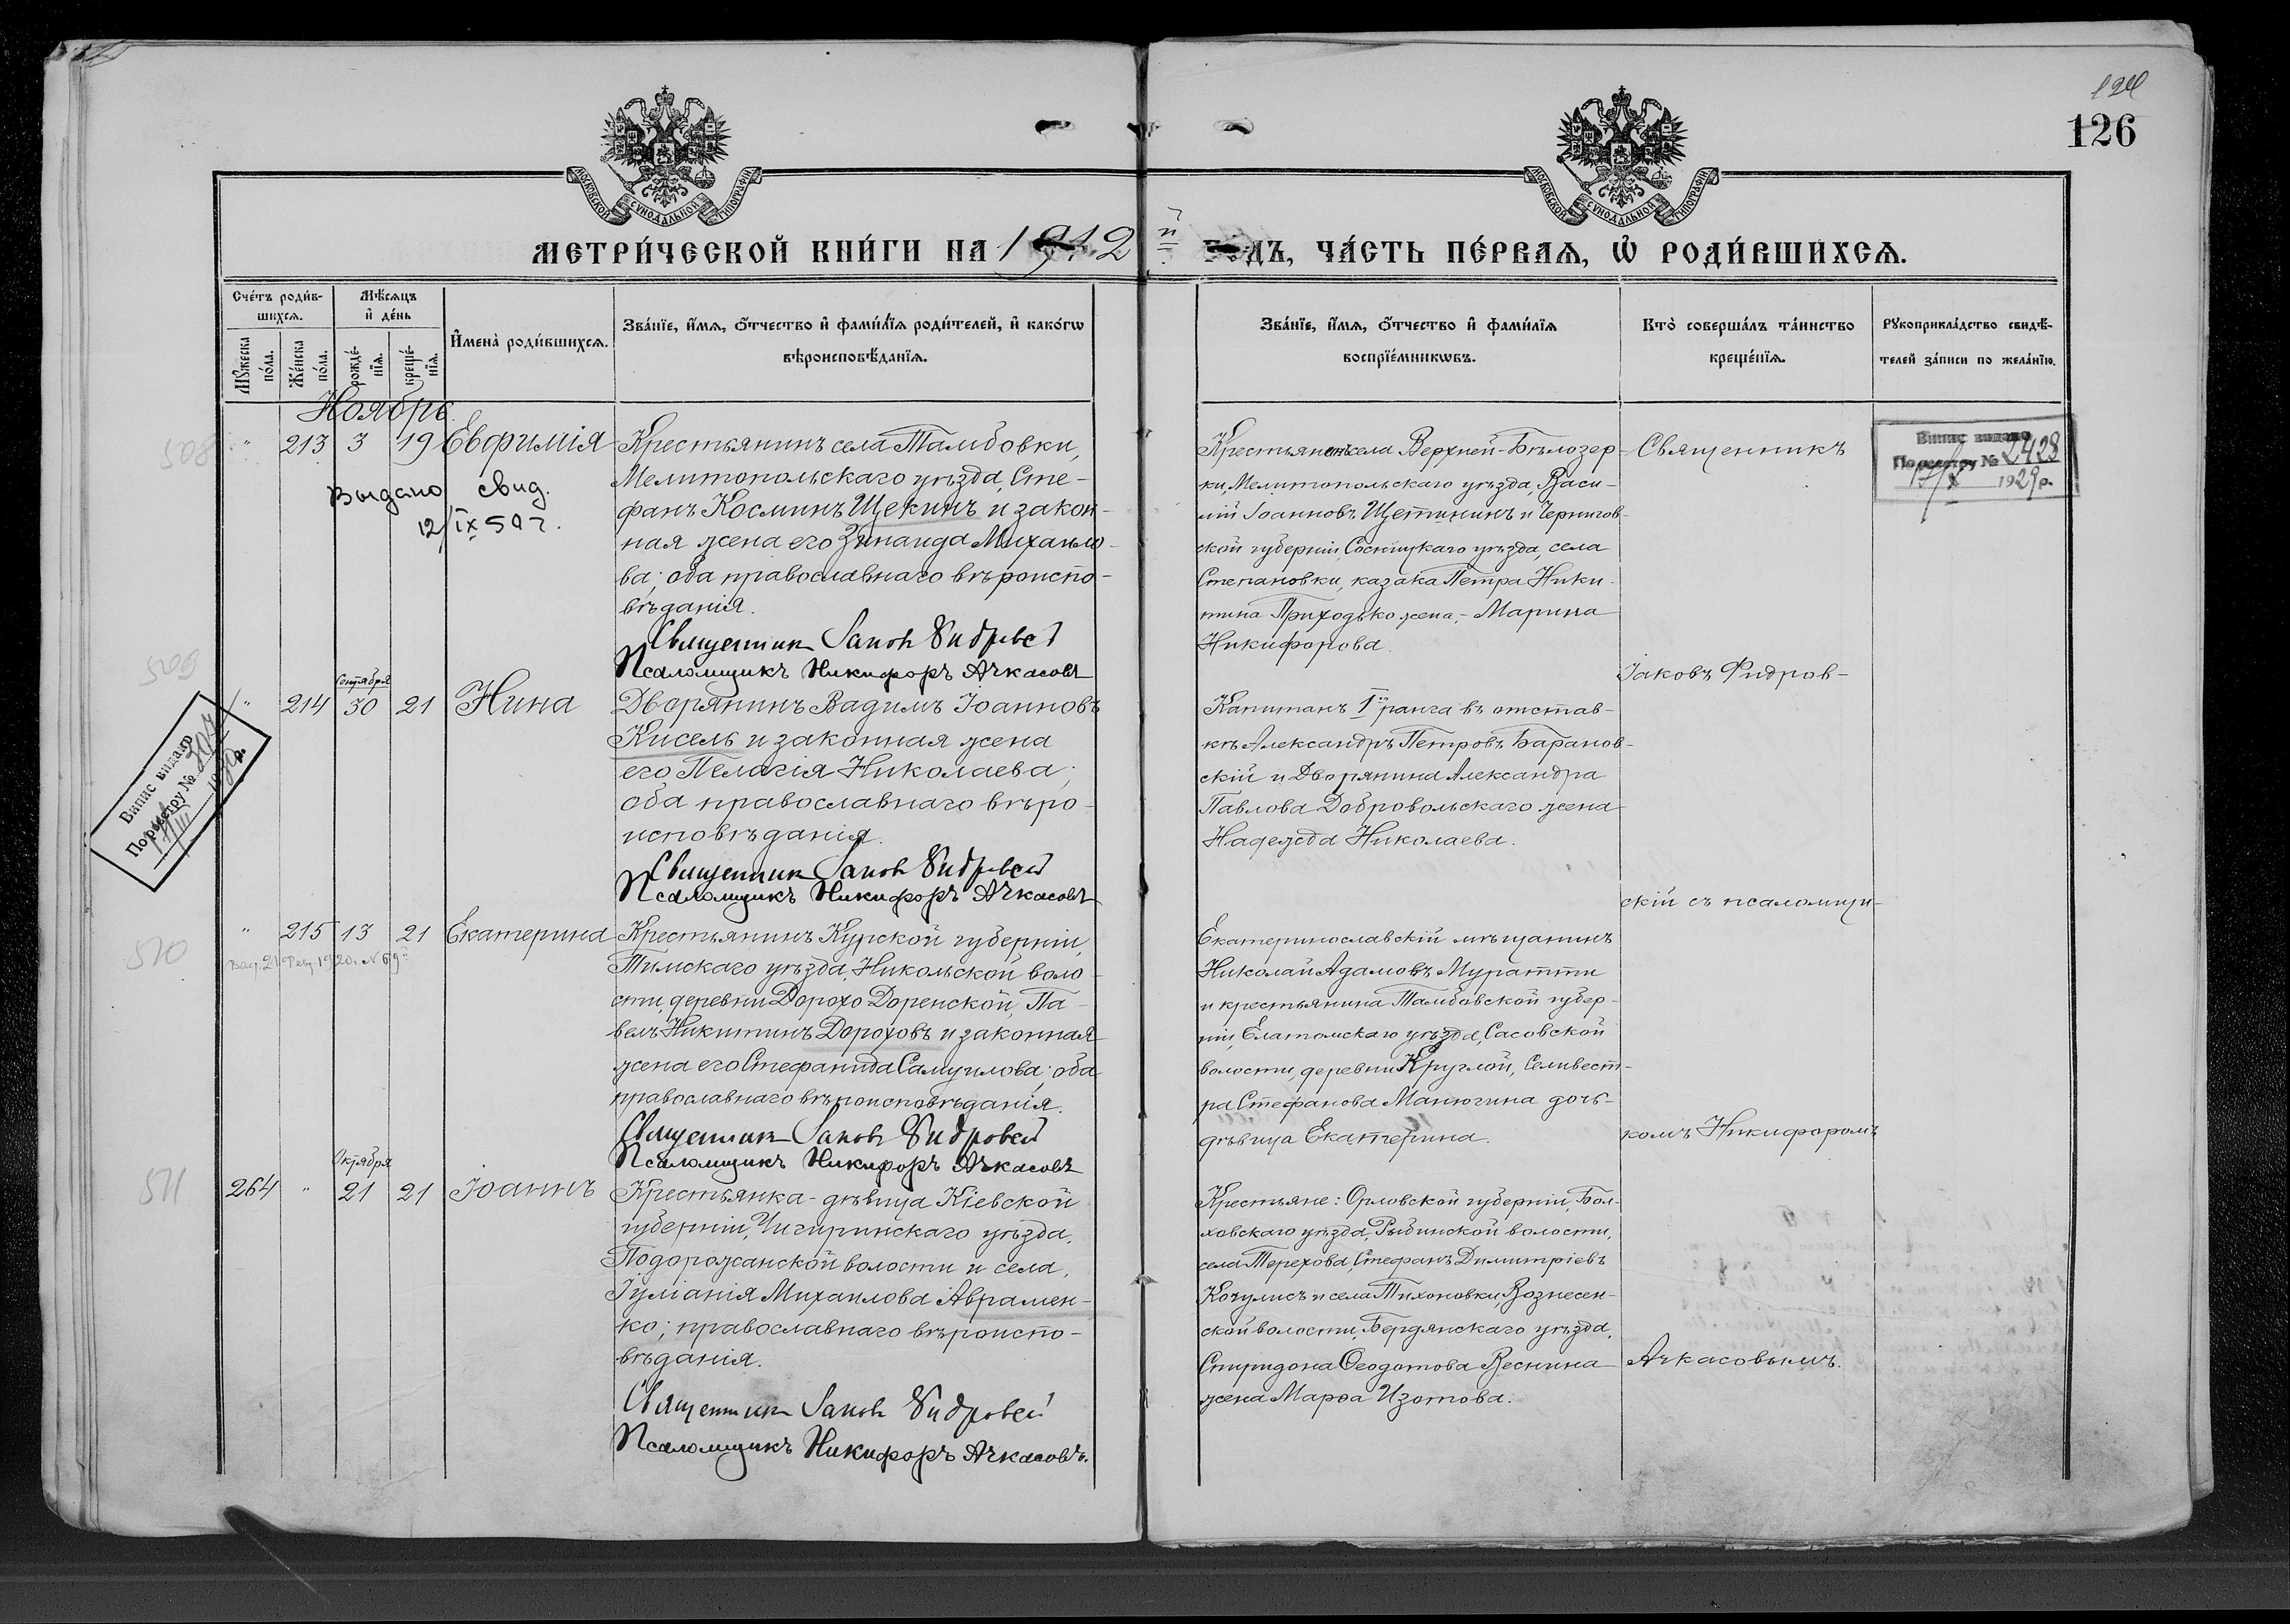 124
126
МОСКОВСКОЙ СѴНОДАЛЬНОЙ ТИПОГРАФІИ
МОСКОВСКОЙ СѴНОДАЛЬНОЙ ТИПОГРАФІИ
МЕТРИ́ЧЕСКОЙ КНИ́ГИ НА 1912 й ГОДЪ, ЧА́СТЬ ПЕ́РВАѦ, Ѡ РОДИ́ВШИХСѦ.
Сче́тъ роди́в-
шихсѧ.
Мꙋ́жеска
по́ла.
Же́нска
по́ла.
Мѣ́сѧцъ
и҆ де́нь
рожде́-
нїѧ.
креще́-
нїѧ.
И҆мена̀ роди́вшихсѧ.
Зва́нїе, и҆́мѧ, ѻ҆́тчество и҆ фами́лїѧ роди́телей, и҆ како́гѡ
вѣроисповѣ́данїѧ.
Зва́нїе, и҆́мѧ, ѻ҆́тчество и҆ фами́лїѧ
воспрїе́мникѡвъ.
Кто̀ соверша́лъ та́инство
креще́нїѧ.
Рꙋкоприкла́дство свидѣ́-
телей за́писи по жела́нїю.
Ноябрь.
508
" 213 3 19 Евфимія
Выдано свид.
12/IX 50 г.
Крестьянинъ села Тамбовки,
Мелитопольскаго уѣзда, Сте-
фанъ Косминъ Щекинъ и закон-
ная жена его Зинаида Михаило-
ва; оба православнаго вѣроиспо-
вѣданія.
Священник Іаков Фидровск
Псаломщикъ Никифоръ Ачкасовъ
Крестьянинъ села Верхней-Бѣлозер-
ки, Мелитопольскаго уѣзда, Васи-
лій Іоанновъ Щетининъ и Чернигов-
ской губерніи, Сосницкаго уѣзда, села
Степановки, казака Петра Ники-
тина Приходько жена, - Марина
Никифорова.
Священникъ
Випис видано
По реєстру № 2428
1929 р.
509
Сентября
" 214 30 21 Нина
Випис видано
По реєстру №
Дворянинъ Вадимъ Іоанновъ
Кисель и законная жена
его Пелагія Николаева;
оба православнаго вѣро-
исповѣданія.
Священник Іаков Фидровск
Псаломщикъ Никифоръ Ачкасовъ
Капитанъ I го ранга въ отстав-
кѣ Александръ Петровъ Баранов-
скій и Дворянина Александра
Павлова Добровольскаго жена
Надежда Николаева.
Іаковъ Фидров-
510
" 215 13 21 Екатерина
Крестьянинъ Курской губерніи,
Тимскаго уѣзда, Никольской воло-
сти, деревни Дорохо Доренской, Па-
велъ Никитинъ Дороховъ и законная
жена его Стефанида Самуилова; оба
православнаго вѣроисповѣданія.
Священник Іаков Фидровск
Псаломщикъ Никифоръ Ачкасовъ
скій съ псаломщи-
Екатеринославскій мѣщанинъ
Николай Адамовъ Муратти
и крестьянина Тамбовской губер-
ніи, Елатомскаго уѣзда, Сасовской
волости, деревни Круглой, Селивест-
ра Стефанова Манюгина дочь-
дѣвица Екатерина.
комъ Никифоромъ
511
Октября
264 " 21 21 Іоаннъ
Крестьянка-дѣвица Кіевской
губерніи, Чигиринскаго уѣзда,
Подорожанской волости и села,
Іуліанія Михаилова Авраmен-
ко; православнаго вѣроиспо-
вѣданія.
Священник Іаков Фидровск
Псаломщикъ Никифоръ Ачкасовъ.
Крестьяне: Орловской губерніи, Бол-
ховскаго уѣзда, Рыбинской волости,
села Терехова, Стефанъ Димитріевъ
Кочулисъ и села Тихоновки, Вознесен-
ской волости, Бердянскаго уѣзда,
Спиридона Ѳеодотова Веснина
жена Марѳа Изотова.
Ачкасовымъ.